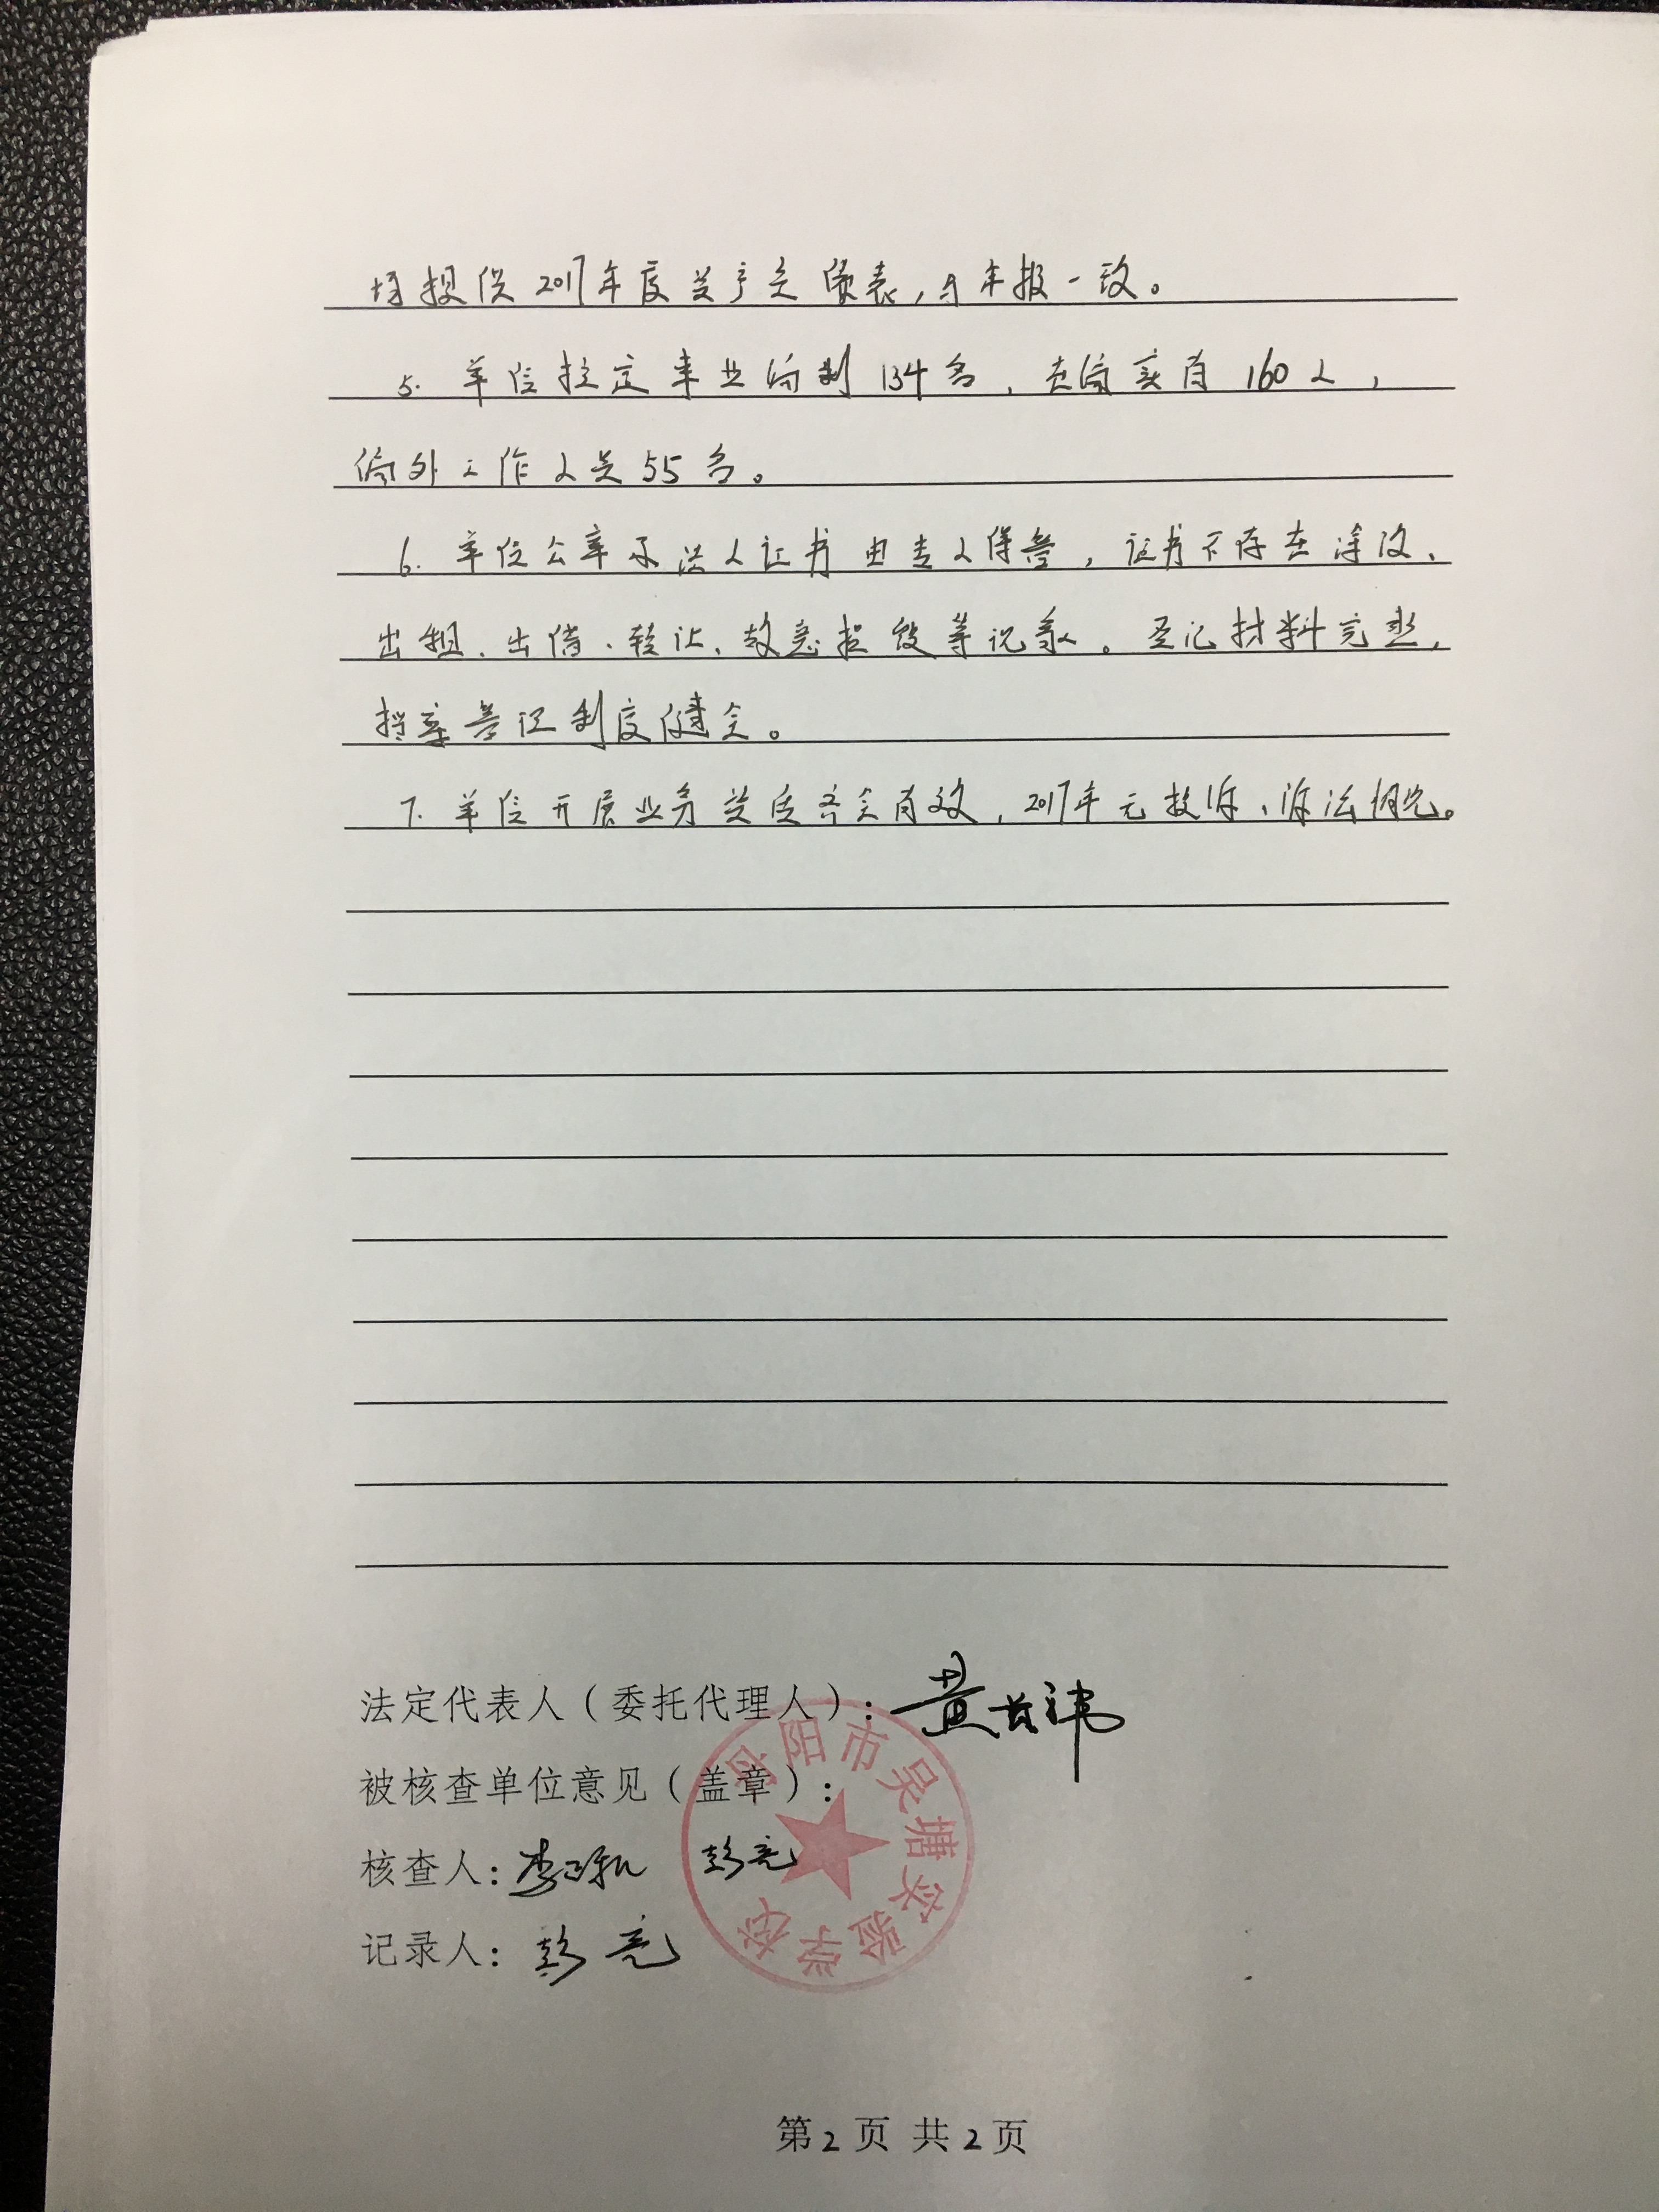 提供2017年度资产负债表，与年报一致。
5. 单位核定事业编制134名，在编实有160人，
编外工作人员55名。
6. 单位公章及法人证书由专人保管，证书不存在涂改、
出租、出借、转让、故意损毁等现象。登记材料完整，
档案登记制度健全。
7. 单位开展业务资质齐全有效，2017年无投诉、诉讼情况。
法定代表人（委托代理人）：黄
被核查单位意见（盖章）：
丹阳市吴塘实验学校
核查人：李 彭亮
记录人：彭亮
第2页 共2页